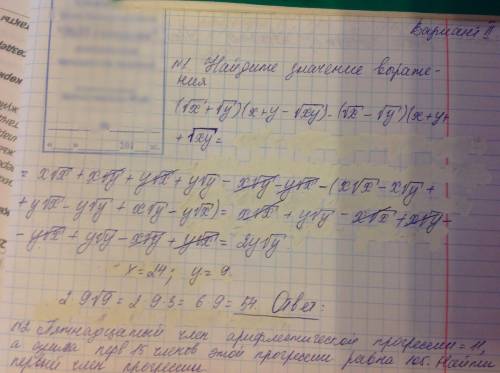 Вариант II
№1. Найдите значение выраже-
ния
(√x + √y)(x+y - √xy) - (√x - √y)(x+y+
+ √xy =
= x√x + x√y + y√x + y√y - x√y - y√x - (x√x - x√y +
+ y√x - y√y + x√y - y√x) = x√x + y√y - x√x + x√y -
- y√x + y√y - x√y + y√x = 2y√y
x = 24; y = 9.
2·9√9 = 2·9·3 = 6·9 = 54. Ответ:
№2. Пятнадцатый член арифметической прогрессии = 11,
а сумма перв 15 членов этой прогрессии равна 105. Найти
первый член прогрессии